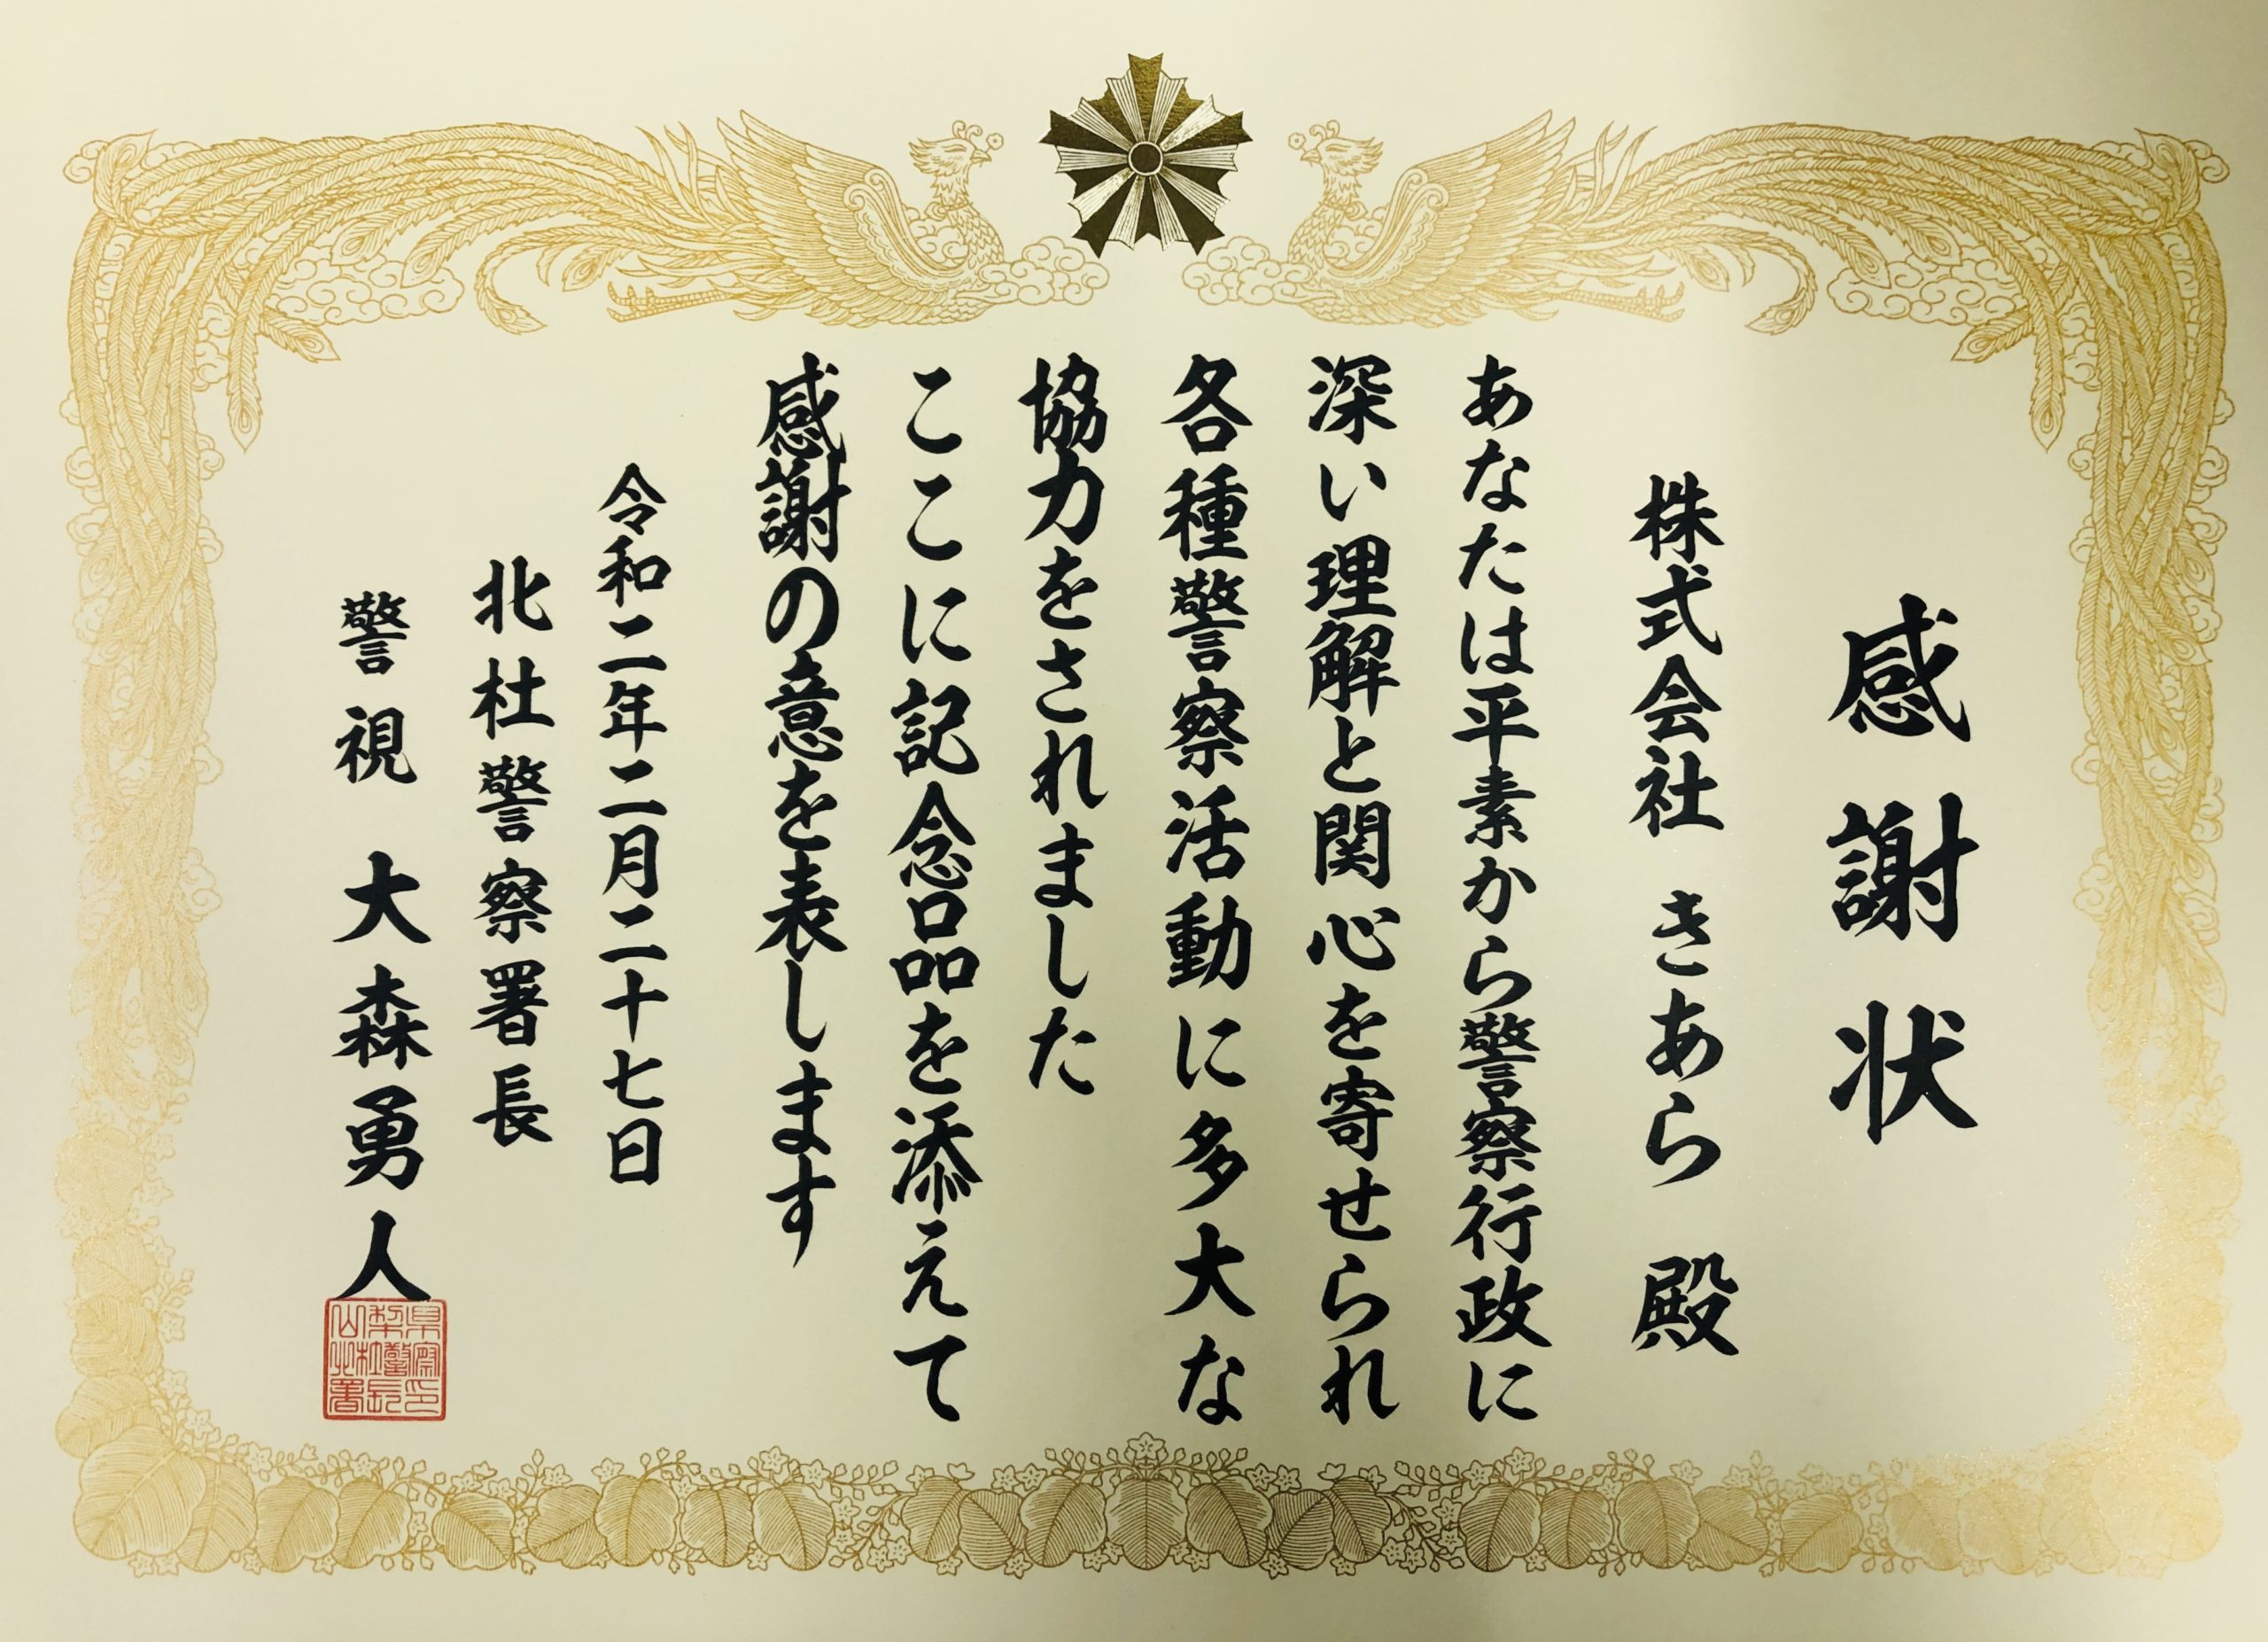 感謝状
株式会社 きあら 殿
あなたは平素から警察行政に
深い理解と関心を寄せられ
各種警察活動に多大な
協力をされました
ここに記念品を添えて
感謝の意を表します
令和二年二月二十七日
北杜警察署長
警視 大森勇人
山梨県
北杜警察
署長印